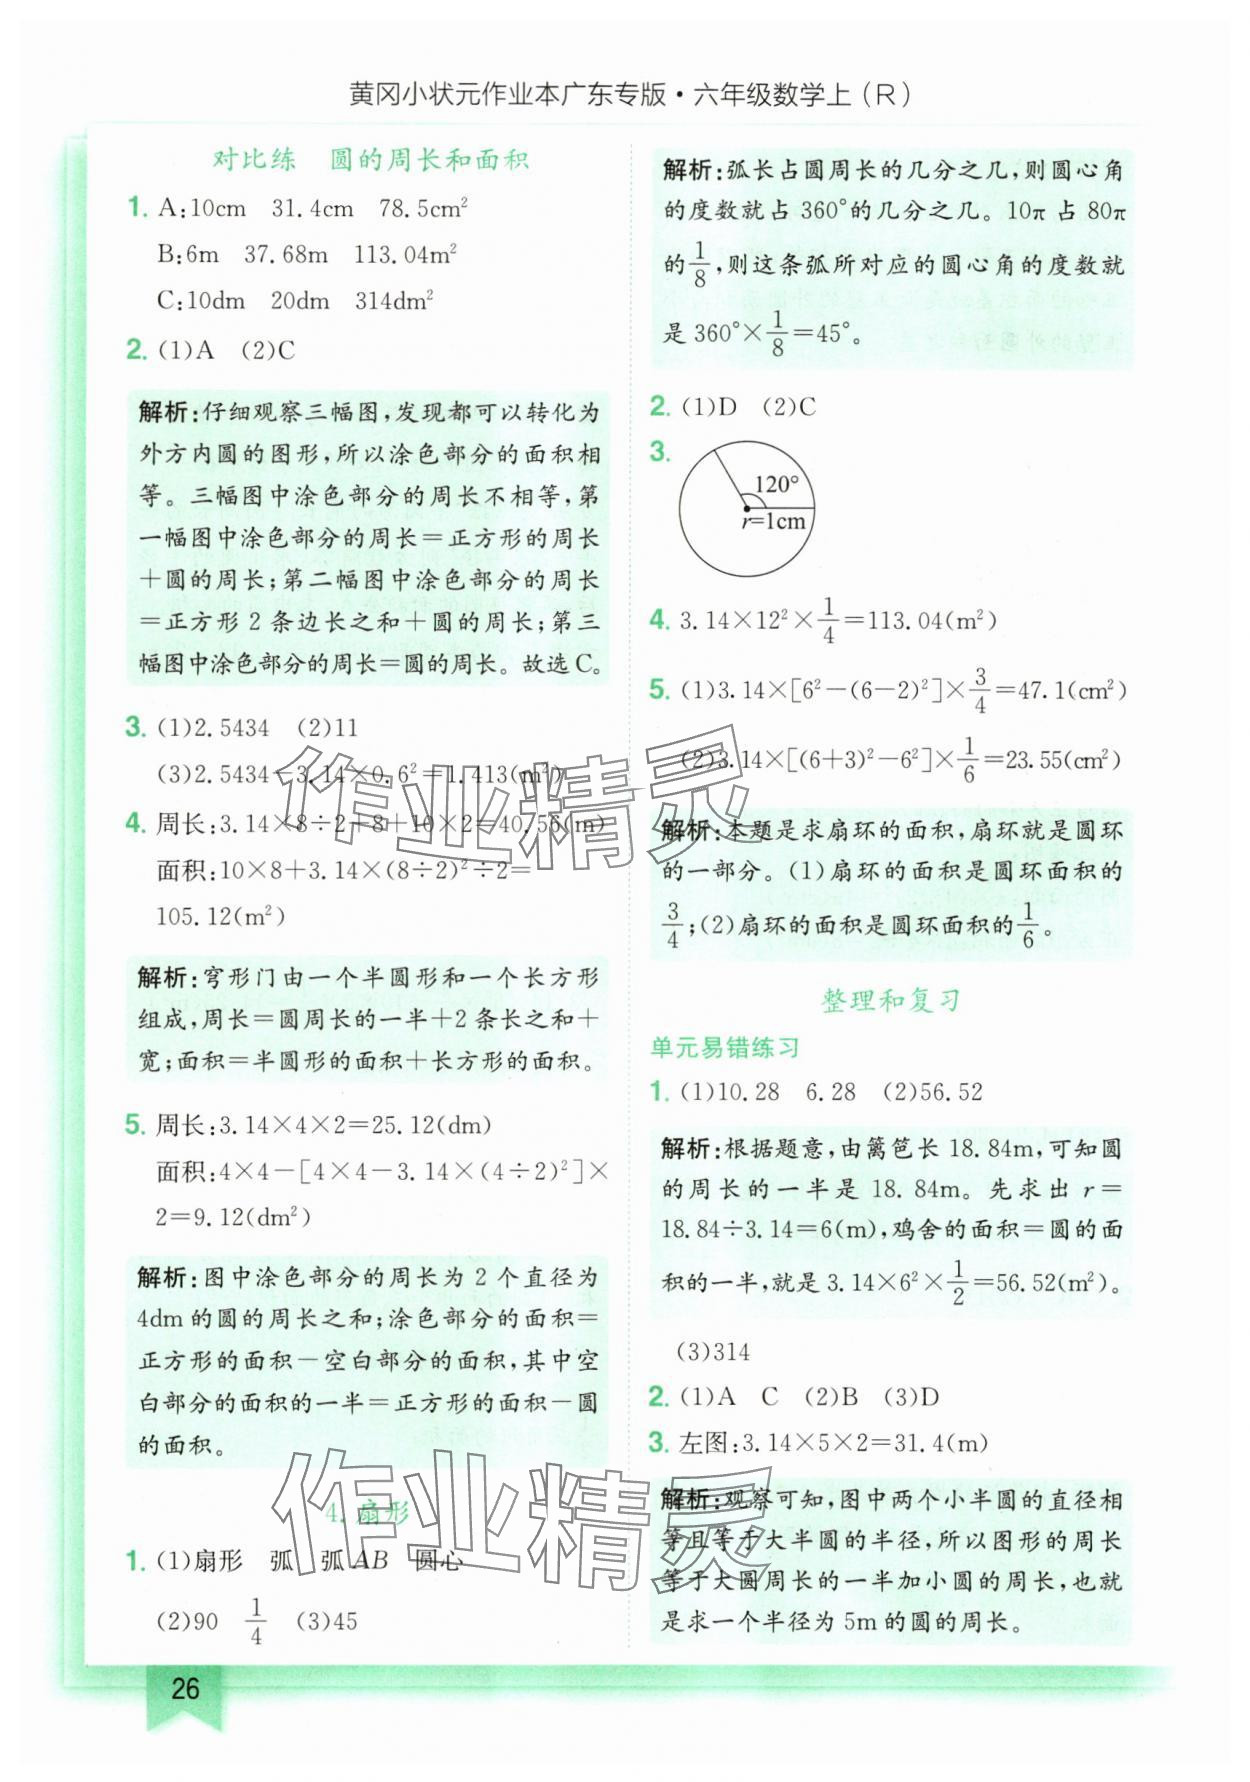 黄冈小状元作业本广东专版·六年级数学上(R)
对比练 圆的周长和面积
1. A:10cm 31.4cm 78.5cm²
B:6m 37.68m 113.04m²
C:10dm 20dm 314dm²
2. (1)A (2)C
解析:仔细观察三幅图,发现都可以转化为
外方内圆的图形,所以涂色部分的面积相
等。三幅图中涂色部分的周长不相等,第
一幅图中涂色部分的周长=正方形的周长
+圆的周长;第二幅图中涂色部分的周长
=正方形 2 条边长之和+圆的周长;第三
幅图中涂色部分的周长=圆的周长。故选C。
3. (1)2.5434 (2)11
(3)2.5434-3.14×0.6²=1.413(m²)
4. 周长:3.14×8÷2+8+10×2=40.56(m)
面积:10×8+3.14×(8÷2)²÷2=
105.12(m²)
解析:穹形门由一个半圆形和一个长方形
组成,周长=圆周长的一半+2 条长之和+
宽;面积=半圆形的面积+长方形的面积。
5. 周长:3.14×4×2=25.12(dm)
面积:4×4-[4×4-3.14×(4÷2)²]×
2=9.12(dm²)
解析:图中涂色部分的周长为 2 个直径为
4dm 的圆的周长之和;涂色部分的面积=
正方形的面积-空白部分的面积,其中空
白部分的面积的一半=正方形的面积-圆
的面积。
4. 扇形
1. (1)扇形 弧 弧AB 圆心
(2)90 1/4 (3)45
解析:弧长占圆周长的几分之几,则圆心角
的度数就占 360°的几分之几。10π 占 80π
的1/8,则这条弧所对应的圆心角的度数就
是 360°×1/8=45°。
2. (1)D (2)C
3.
120°
r=1cm
4. 3.14×12²×1/4=113.04(m²)
5. (1)3.14×[6²-(6-2)²]×3/4=47.1(cm²)
(2)3.14×[(6+3)²-6²]×1/6=23.55(cm²)
解析:本题是求扇环的面积,扇环就是圆环
的一部分。(1)扇环的面积是圆环面积的
3/4;(2)扇环的面积是圆环面积的1/6。
整理和复习
单元易错练习
1. (1)10.28 6.28 (2)56.52
解析:根据题意,由篱笆长 18.84m,可知圆
的周长的一半是 18.84m。先求出 r=
18.84÷3.14=6(m),鸡舍的面积=圆的面
积的一半,就是 3.14×6²×1/2=56.52(m²)。
(3)314
2. (1)A C (2)B (3)D
3. 左图:3.14×5×2=31.4(m)
解析:观察可知,图中两个小半圆的直径相
等且等于大半圆的半径,所以图形的周长
等于大圆周长的一半加小圆的周长,也就
是求一个半径为 5m 的圆的周长。
26
作业精灵
作业精灵